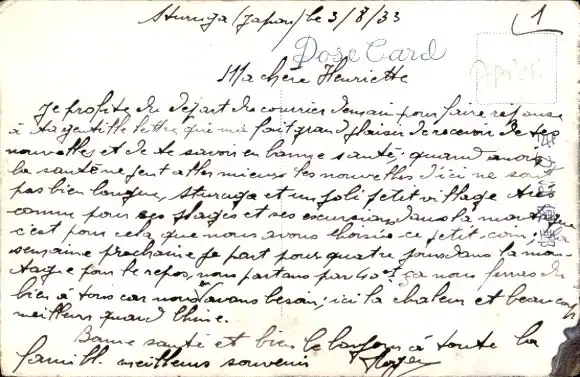 Sturuga (Japon) le 3/8/33
1
Post Card
Ma chère Henriette
Je profite du départ du courrier demain pour faire réponse
à ta gentille lettre, qui m'a fait grand plaisir de recevoir de tes
nouvelles et de te savoir en bonne santé, quand à nous
la santé ne peut aller mieux les nouvelles d'ici ne sont
pas bien longue, Sturuga et un joli petit village très
connu pour ses plages et ses excursions dans la montagne
c'est pour cela que nous avons choisie ce petit coin, la
semaine prochaine je part pour quatre jours dans la mon-
tagne pour le repos, nous partons par 40 et ça nous feras du
bien à tous car nous l'avons besoin, ici la chaleur et beaucoup
meilleurs quand Chine.
Bonne santé et bien le bonjour à toute la
famill. meilleurs souvenir Roger